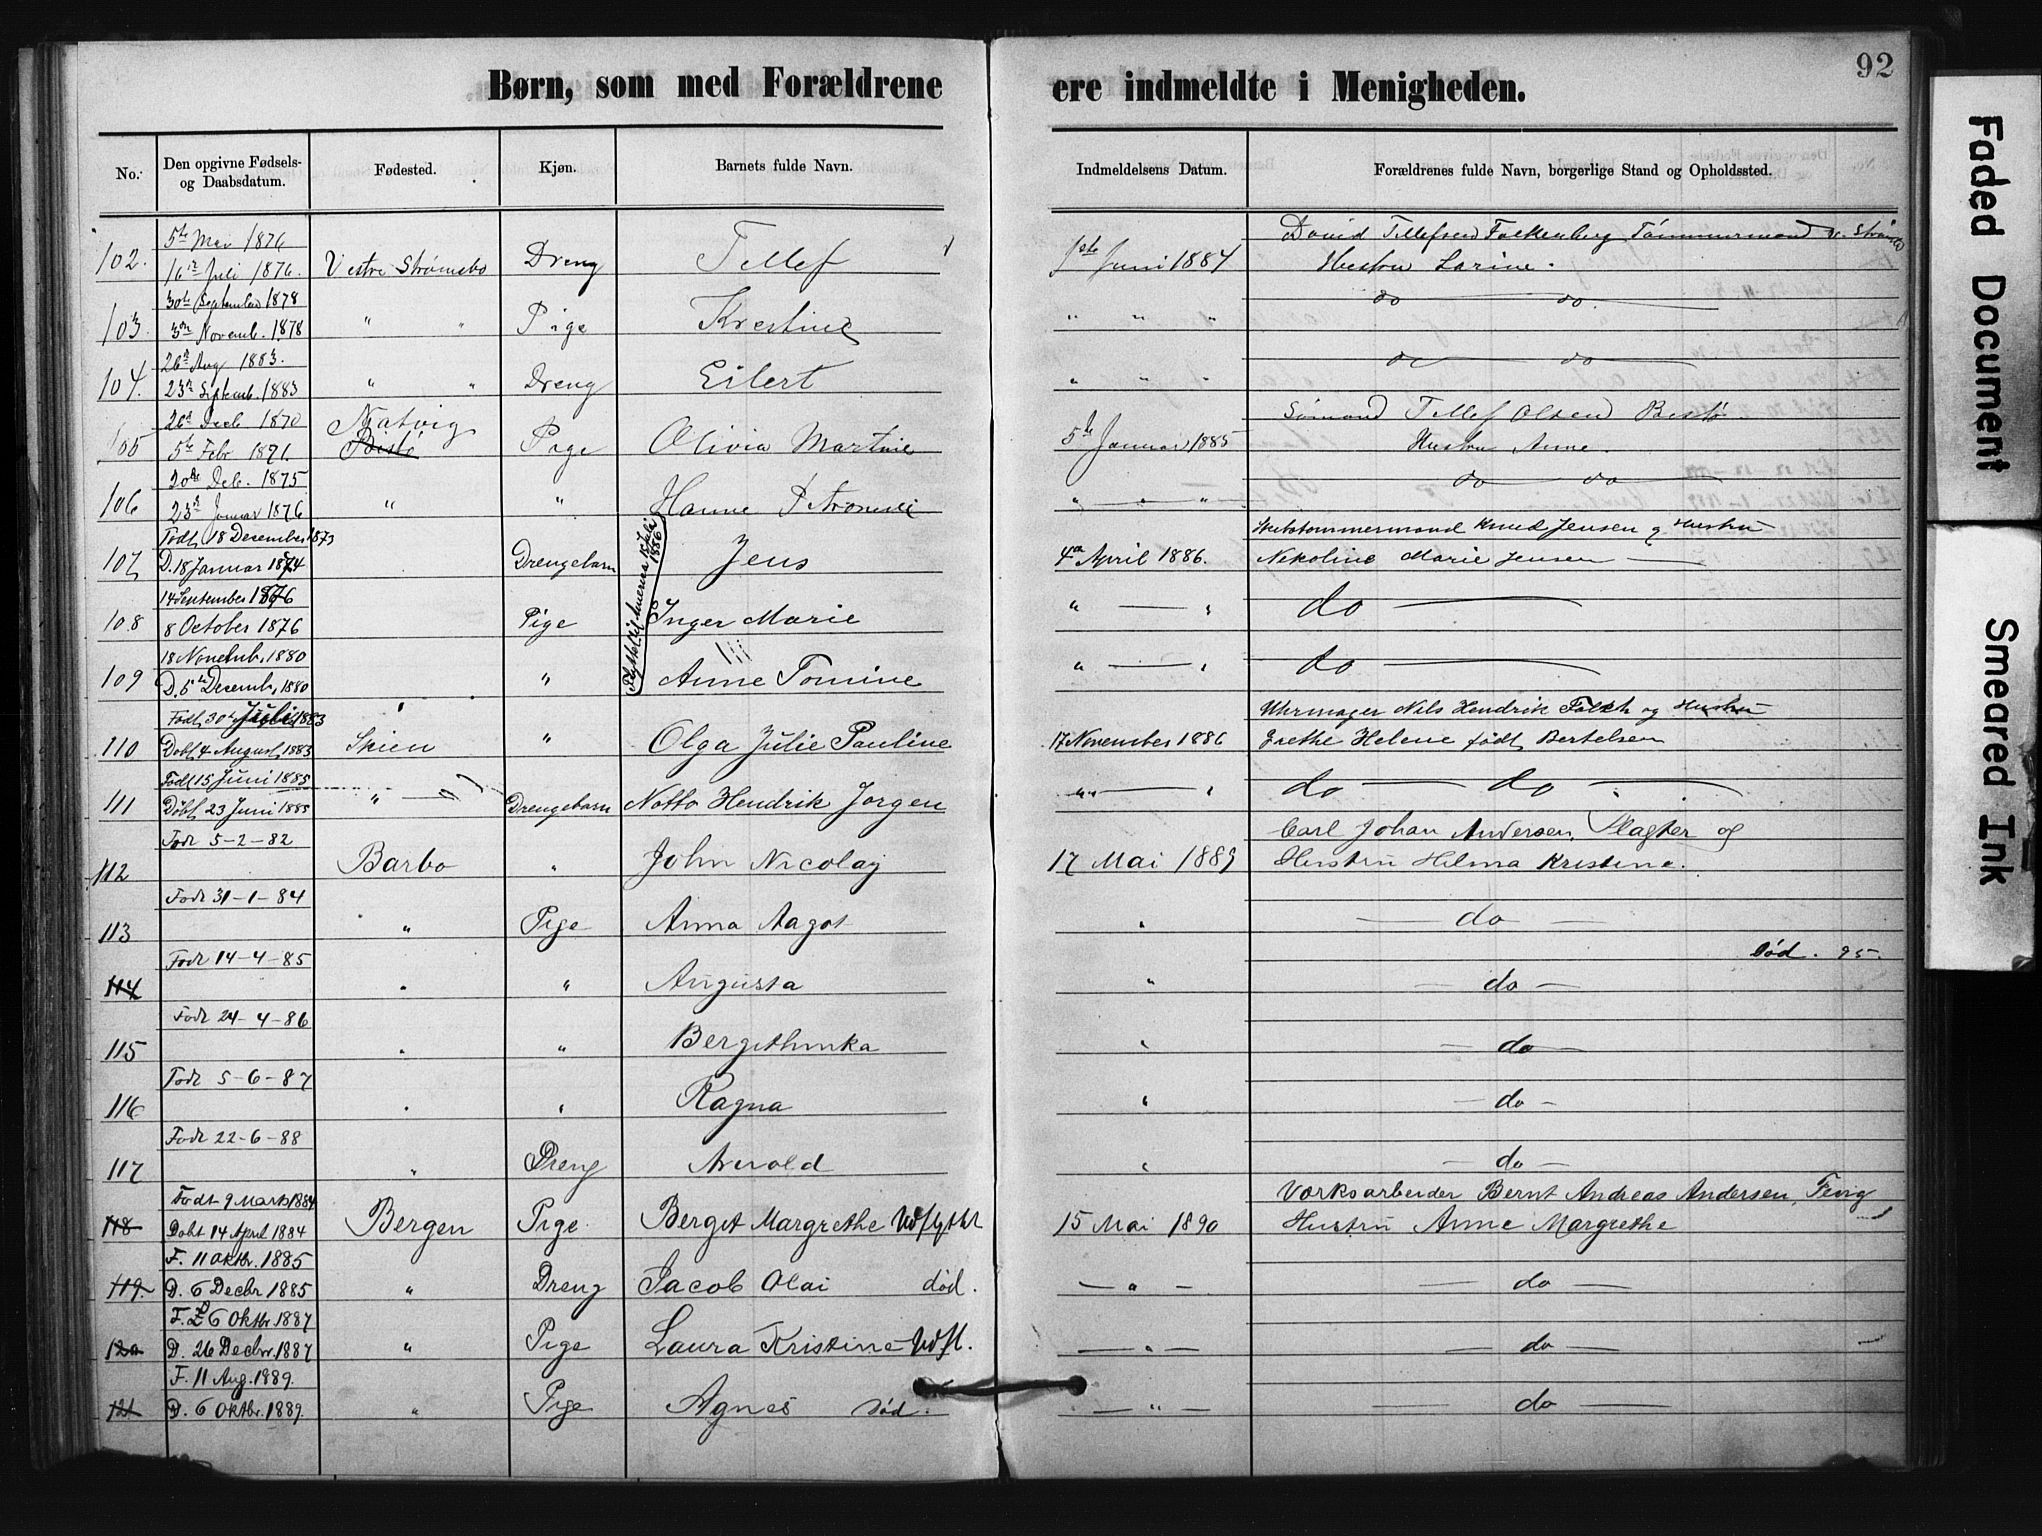 92
Børn, som med Forældrene ere indmeldte i Menigheden.
No. Den opgivne Fødsels- og Daabsdatum. Fødested. Kjøn. Barnets fulde Navn. Indmeldelsens Datum. Forældrenes fulde Navn, borgerlige Stand og Opholdssted.
5te Mai 1876 David Tellefsen Falkenberg Tømmermand V. Strømsbo
102. 16de Juli 1876. Vestre Strømsbo Dreng Tellef 1ste Juni 1884 Hustru Larine.
30te September 1878 do do.
103. 3die Novemb. 1878 " " Pige Krestine " " "
26de Aug 1883. do do
104. 23de Septemb. 1883 " " Dreng Eilert " " "
26de Decb 1870 Natvig Sømand Tellef Olsen Bestø
105 5te Febr 1871 Bestø Pige Olivia Martine 5te Januar 1885 Hustru Anne.
20de Deb. 1875 do do
106 23de Januar 1876 " " Hanne Petronelle " " "
Født 18 Desember 1873 Skibstømmermand Knud Jensen og Hustru
107 D. 18 Januar 1874 Drengebarn Jens 4de April 1886. Nekoline Marie Jensen
Flyttet til Amerika Juli 1886
14 September 1876
108 8 October 1876 Pige Inger Marie " " do
18 Novemb. 1880
109 D. 5te Desemb. 1880 " Anne Tomine " " do
Født 30te Juli 1883 Uhrmager Nils Hendrik Falch og Hustru
110 Døbt 4 August 1883 Skien " Olga Julie Pauline 17 November 1886 Grethe Helene født Bertelsen
Født 15 Juni 1885
111 Døbt 23 Juni 1885 " Drengebarn Notto Hendrik Jørgen " " do do
Født 5-2-82 Carl Johan Andersen, Slagter og
112 Barbo " John Nicolay 17 Mai 1889 Hustru Hilma Kristine.
Født 31-1-84
113 " Pige Anna Aagot " do
Født 14-4-85 død. 95.
114 " " Augusta " do
Født 24-4-86
115 " " Bergithinka " do
Født 5-6-87
116 " " Ragna " do
Født 22-6-88
117 " Dreng Arnold " do
Født 9 Marts 1884 Værksarbeider Bernt Andreas Andersen, Fevig
118 Døbt 14 April 1884 Bergen Pige Berget Margrethe Udflyttet 15 Mai 1890 Hustru Anne Margrethe
F. 11 Oktbr. 1885
119. D. 6 Decbr 1885 " Dreng Jacob Olai død. " do
F. 6 Oktbr 1887
120 D. 26 Decbr. 1887 " Pige Laura Kristine Udfl. " do
F. 11 Aug. 1889.
121 D. 6 Oktbr. 1889. " Pige Agnes død. " do
Faded Document
Smeared Ink